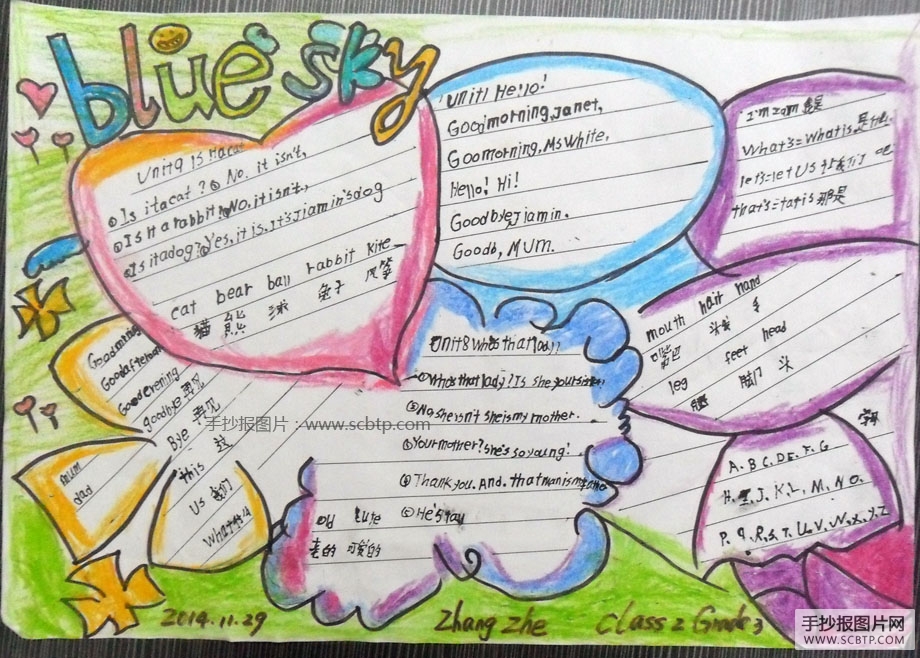 blue sky
Unit9 Is it a cat
①Is it a cat? ②No. it isn't,
①Is it a rabbit? ②No, it isn't,
①Is it a dog? ②Yes, it is. It's Jiamin's dog
cat bear ball rabbit kite
貓 熊 球 兔子 风筝
Unit1 Hello!
Goodmorning, Janet,
Goomorning, Ms White,
Hello! Hi!
Goodbye, Jiamin.
Goodb, MUM.
I'm=I am 是
What's=What is 是什么
let's=let US 让我们 吧
that's=that is 那是
mouth hair hand
嘴巴 头发 手
leg feet head
腿 脚 头
字母
A. B. C. D. E. F. G
H. I. J. K. L. M. N. O.
P. Q. R. S. T. U. V. W. X. Y. Z
Unit8 Who's that lady?
①Who's that lady? Is she your sister
②No, she isn't she is my mother.
①Your mother? She's so young!
②Thank you. And. that man is my
old cute ①He's
老的 可爱的
Good morning
Good afternoon
Good evening
goodbye 再见
Bye 再见
this 这
US 我们
What 什么
mum
dad
手抄报图片：www.scbtp.com
2014.11.29
Zhang Zhe Class 2 Grade 3
手抄报图片网
WWW.SCBTP.COM